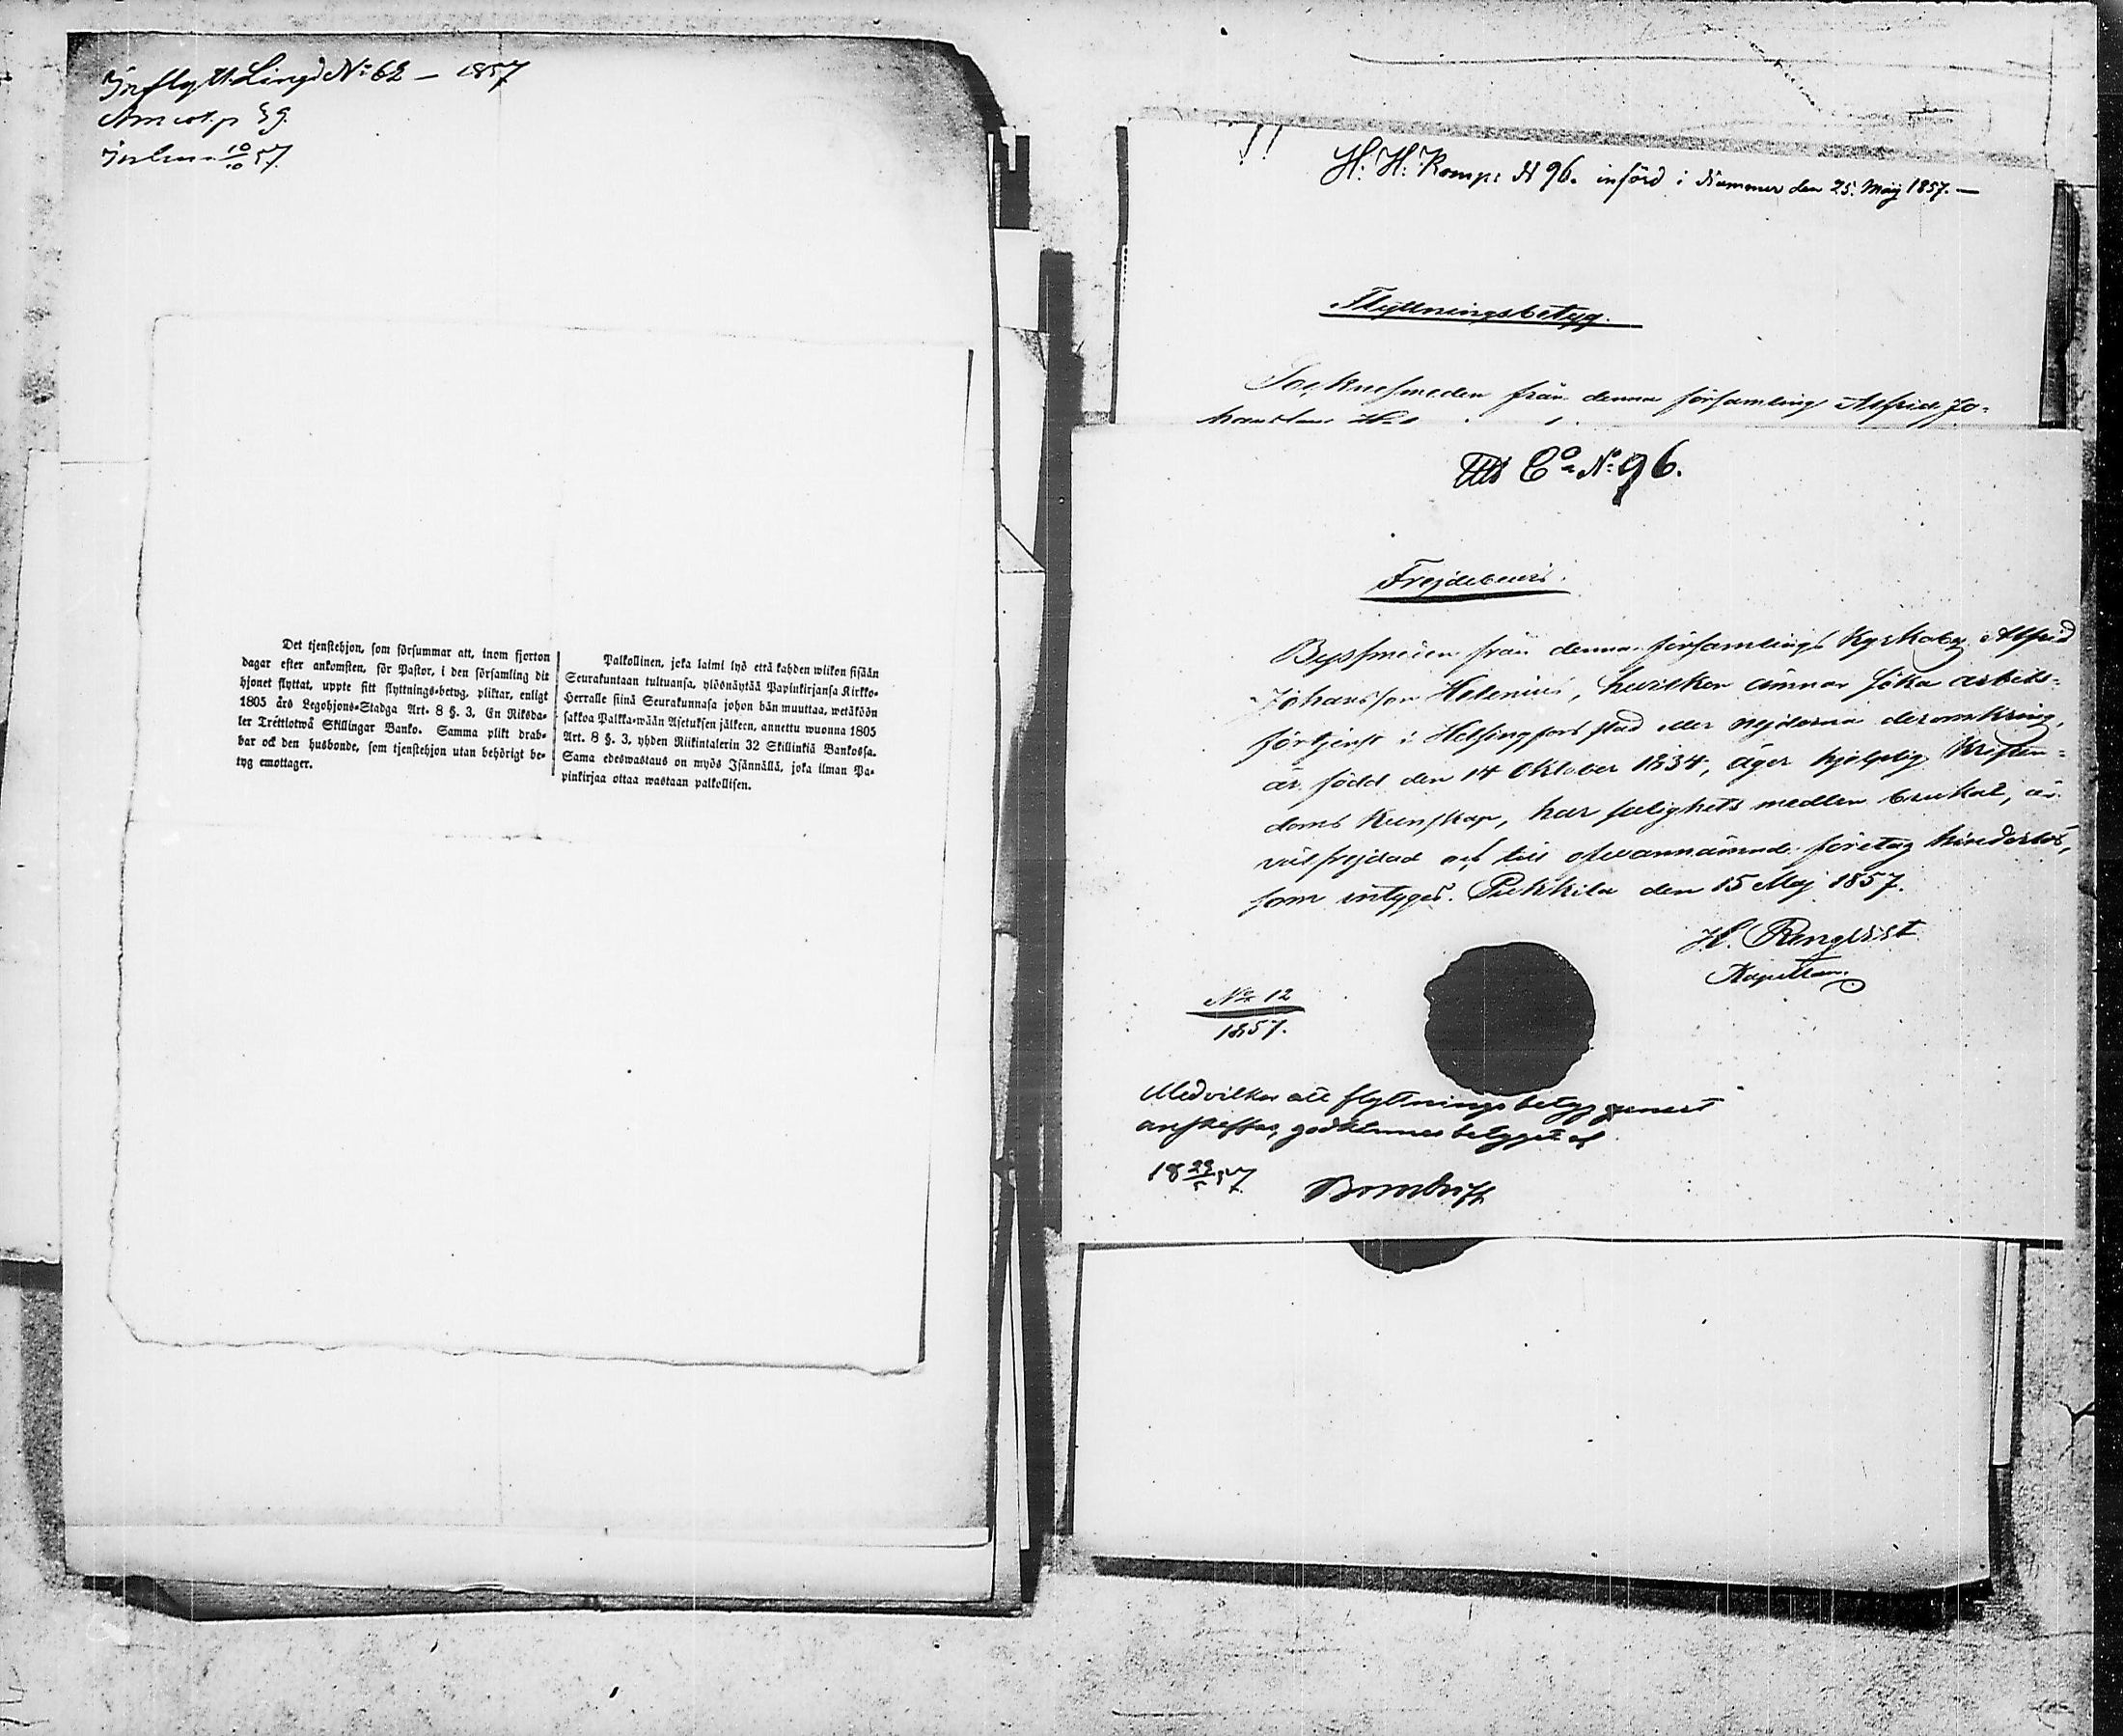 Inflytt. Längd No 62 – 1857
Det tjenstehjon, som försummar att, inom fjorton
dagar efter ankomsten, för Pastor, i den församling dit
hjonet flyttat, uppte sitt flyttnings-betyg, pliktar, enligt
1805 års Legohjons-Stadga Art. 8 §. 3, En Riksda-
ler Trettiotwå Skillingar Banko. Samma plikt drab-
bar ock den husbonde, som tjenstehjon utan behörigt be-
tyg emottager.
Palkollinen, joka laimi lyö että kahden wiikon sisään
Seurakuntaan tultuansa, ylösnäytää Papinkirjansa Kirkko-
Herralle siinä Seurakunnasa johon hän muuttaa, wetäköön
sakkoa Palkka-wään Asetuksen jälkeen, annettu wuonna 1805
Art. 8 §. 3, yhden Riikintalerin 32 Skillinkiä Bankossa.
Sama edeswastaus on myös Isännällä, joka ilman Pa-
pinkirjaa ottaa wastaan palkollisen.
H: H: Komp: N 96. införd i Nummer den 25. Maij 1857. —
Flyttningsbetyg.
Socknesmeden från denna församling Alfrid Jo-
Co No 96.
Frejdebevis.
Bysmeden från denna församlings Kyrkoby Alfrid
Johansson Helenius, hvilken ämnar söka arbets-
förtjenst i Helsingfors stad eller nejderna deromkring,
är född den 14 Oktober 1834, äger hjelplig Kristen-
doms Kunskap, har salighets medlen brukat, är
väl frejdad och till ofvannämnde företag hinderlös,
som intygas. Pukkila den 15 Maj 1857.
H. Renqvist
Kapellan.
No 12
1857.
Med vilkor att flyttningsbetyg genast
anskaffas, godkännes betyget af
18 29/5 57.